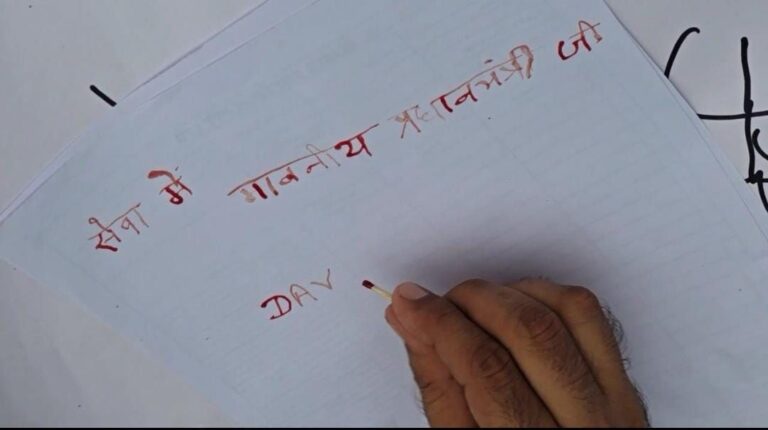 सेवा में माननीय प्रधानमंत्री जी
DAV